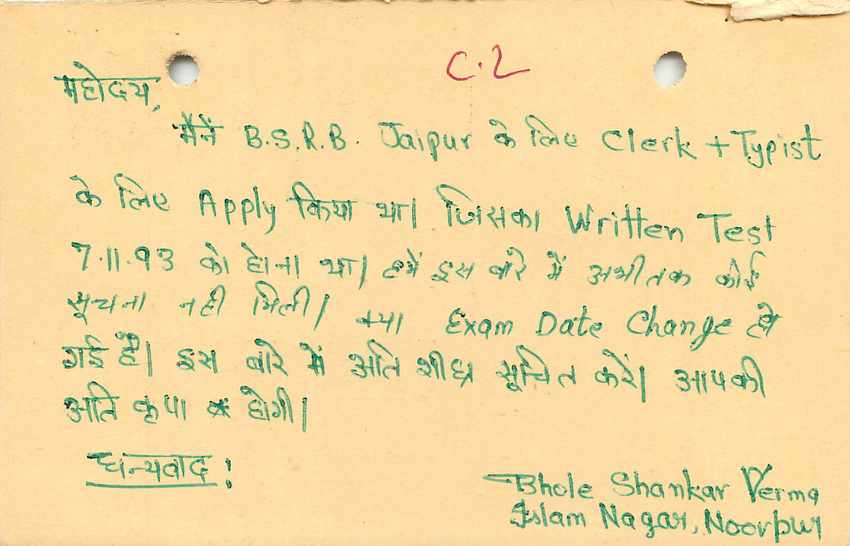 C.2
महोदय,
मैनें B.S.R.B. Jaipur के लिए Clerk + Typist
के लिए Apply किया था। जिसका Written Test
7.11.93 को होना था। हमें इस बारे में अभीतक कोई
सूचना नही मिली। क्या Exam Date Change हो
गई है। इस बारे में अति शीघ्र सूचित करें। आपकी
अति कृपा होगी।
धन्यवाद!
Bhole Shankar Verma
Islam Nagar, Noorpur